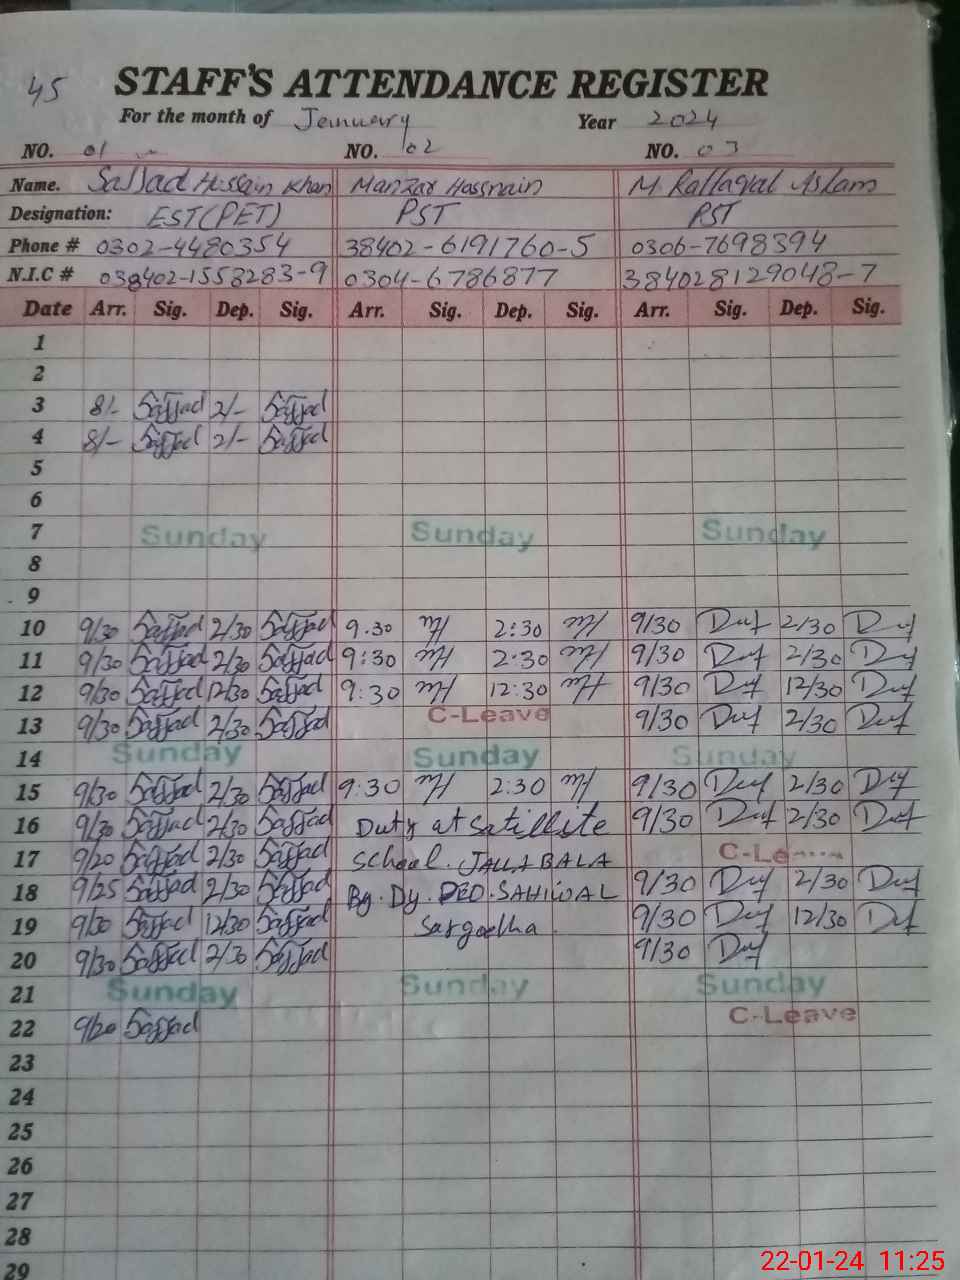 45
STAFF'S ATTENDANCE REGISTER
For the month of Jenuuary Year 2024
NO. 01 NO. 02 NO. 03
Name. Sajjad Hussain Khan Manzar Hassnain M. Aslam
Designation: EST(PET) PST PST
Phone # 0302-4480354 38402-6191760-5 0306-7698394
N.I.C # 038402-1558283-9 0304-6786877 384028129048-7
Date Arr. Sig. Dep. Sig. Arr. Sig. Dep. Sig. Arr. Sig. Dep. Sig.
1
2
3 8/- Sajjad 2/- Sajjad
4 8/- Sajjad 2/- Sajjad
5
6
7 Sunday Sunday Sunday
8
9
10 9/30 Sajjad 2/30 Sajjad 9.30 MH 2:30 MH 9/30 2/30
11 9/30 Sajjad 2/30 Sajjad 9:30 MH 2:30 MH 9/30 2/30
12 9/30 Sajjad 12/30 Sajjad 9:30 MH 12:30 MH 9/30 12/30
13 9/30 Sajjad 2/30 Sajjad C-Leave 9/30 2/30
14 Sunday Sunday Sunday
15 9/30 Sajjad 2/30 Sajjad 9:30 MH 2:30 MH 9/30 2/30
16 9/30 Sajjad 2/30 Sajjad Duty at Satillite 9/30 2/30
17 9/20 Sajjad 2/30 Sajjad School. JALLIBALA C-Leave
18 9/25 Sajjad 2/30 Sajjad By. Dy. DEO. SAHIWAL 9/30 2/30
19 9/30 Sajjad 12/30 Sajjad Sargodha. 9/30 12/30
20 9/30 Sajjad 2/30 Sajjad 9/30
21 Sunday Sunday Sunday
22 9/20 Sajjad C-Leave
23
24
25
26
27
28
29
22-01-24 11:25